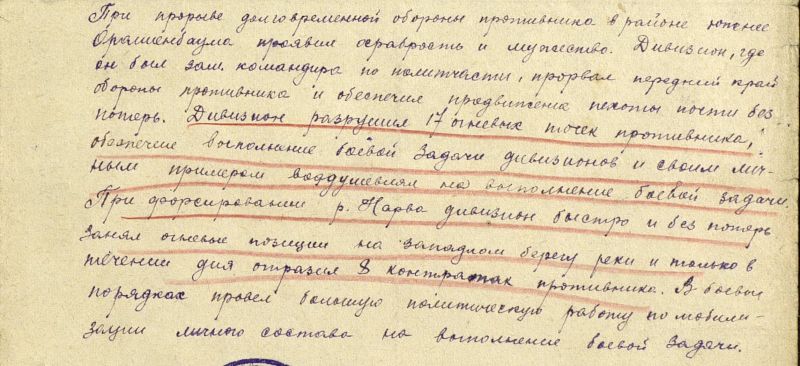 При прорыве долговременной обороны противника в районе южнее
Ораниенбаума проявил храбрость и мужество. Дивизион, где
он был зам. командира по политчасти, прорвал передний край
обороны противника и обеспечил продвижение пехоты почти без
потерь. Дивизион разрушил 17 огневых точек противника,
обеспечил выполнение боевой задачи дивизионов и своим лич-
ным примером воодушевлял на выполнение боевой задачи.
При форсировании р. Нарва дивизион быстро и без потерь
занял огневые позиции на западном берегу реки и только в
течении дня отразил 8 контратак противника. В боевых
порядках провел большую политическую работу по мобили-
зации личного состава на выполнение боевой задачи.